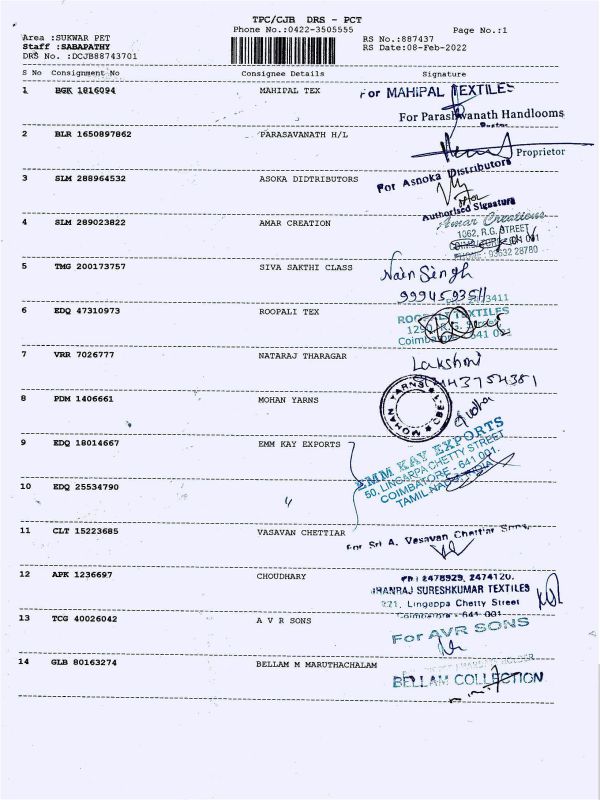 TPC/CJB DRS - PCT
Phone No.:0422-3505555
Page No.:1
Area :SUKWAR PET
RS No.:887437
Staff :SABAPATHY
RS Date:08-Feb-2022
DRS No. :DCJB88743701
S No Consignment No Consignee Details Signature
1 BGK 1816094 MAHIPAL TEX
For MAHIPAL TEXTILES
For Parashwanath Handlooms
2 BLR 1650897862 PARASAVANATH H/L
Proprietor
3 SLM 288964532 ASOKA DIDTRIBUTORS
For Asnoka Distributors
Authorised Signature
4 SLM 289023822 AMAR CREATION
Amar Creations
1062, R.G. STREET
PHONE: 93632 28780
5 TMG 200173757 SIVA SAKTHI CLASS
Nain Singh
6 EDQ 47310973 ROOPALI TEX
TEXTILES
Coimbatore 641 001
7 VRR 7026777 NATARAJ THARAGAR
Lakshmi
8 PDM 1406661 MOHAN YARNS
MOHAN YARNS CBE
9 EDQ 18014667 EMM KAY EXPORTS
EMM KAY EXPORTS
50, LINGAPPA CHETTY STREET
COIMBATORE - 641 001.
TAMIL NADU, INDIA
10 EDQ 25534790
11 CLT 15223685 VASAVAN CHETTIAR
For Sri A. Vasavan Chettiar Sons,
12 APK 1236697 CHOUDHARY
PH: 2478929, 2474120.
DHANRAJ SURESHKUMAR TEXTILES
221, Lingappa Chetty Street
Coimbatore - 641 001
13 TCG 40026042 A V R SONS
For AVR SONS
14 GLB 80163274 BELLAM M MARUTHACHALAM
BELLAM COLLECTION